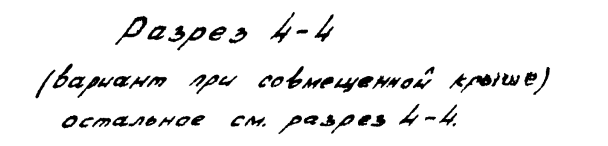 Разрез 4-4
(вариант при совмещенной крыше)
остальное см. разрез 4-4.